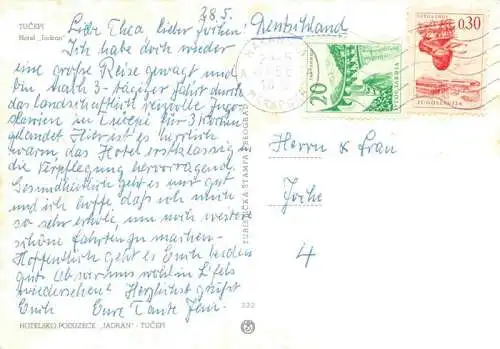 TUČEPI
Hotel „Jadran"
28.5.
Liebe Thea lieber Jochen!
Ich habe doch wieder
eine große Reise gewagt und
bin nach 3-tägiger Fahrt durch
das landschaftlich reizvolle Jugo-
slawien in Tučepi für 3 Wochen
gelandet. Hier ist es herrlich
warm das Hotel erstklassig in
die Verpflegung hervorragend.
Gesundheitlich geht es mir gut
und ich hoffe daß ich mich
so sehr erhole, um noch weitere
schöne Fahrten zu machen.
Hoffentlich geht es Euch beiden
gut. Ob wir uns wohl in
wiedersehen? Herzlichst grüßt
Euch Eure Tante
HOTELSKO PODUZEĆE „JADRAN" - TUČEPI
TURISTIČKA ŠTAMPA - BEOGRAD
222
Deutschland
20
JUGOSLAVIJA
0.30
JUGOSLAVIJA
Herrn & Frau
4